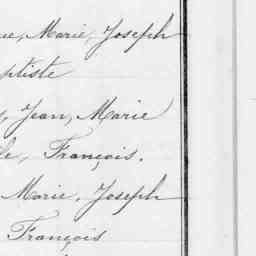 ue, Marie, Joseph
ptiste
, Jean, Marie
le, François.
Marie, Joseph
François